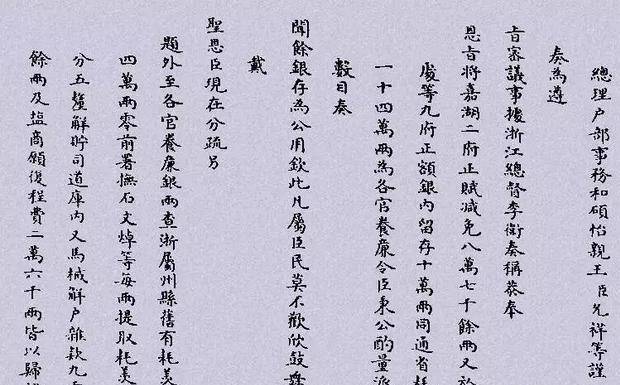 總理户部事務和碩怡親王臣允祥等謹
奏為遵
旨審議事據浙江總督李衛奏稱恭奉
恩旨將嘉湖二府正賦減免八萬七千餘兩又於
處等九府正額銀內留存十萬兩同通省耗
一十四萬兩為各官養廉令臣秉公酌量派
數目奏
聞餘銀存為公用欽此凡屬臣民莫不歡欣鼓舞
戴
聖恩臣現在分疏另
題外至各官養廉銀兩查浙屬州縣舊有耗羡
四萬兩零前署撫石文焯等每兩提取耗羡
分五釐解貯司道庫內又馬械解户雜款九
餘兩及塩商願復程費二萬六千兩皆以歸